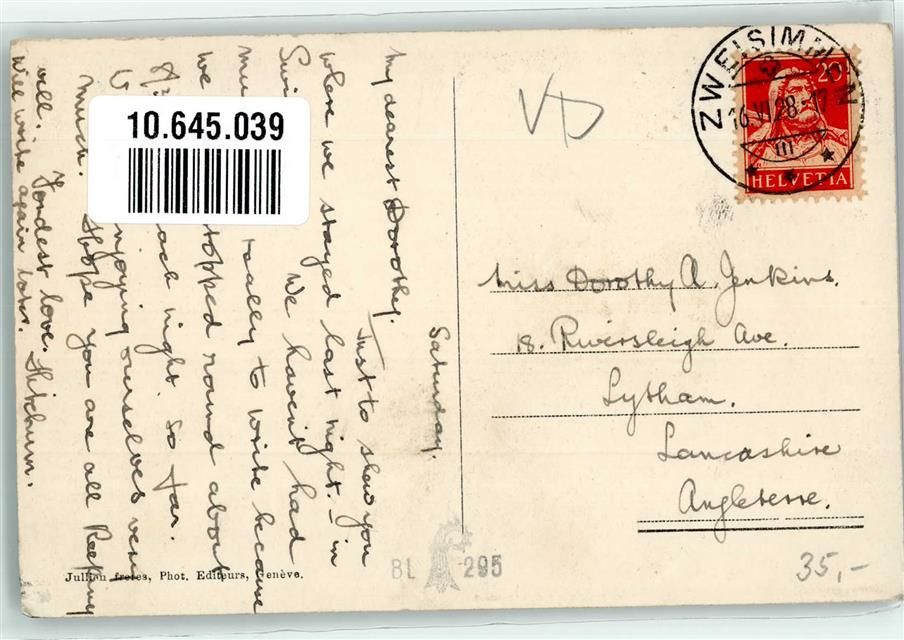 Saturday.
My dearest Dorothy.
Just to show you
where we stayed last night. in
We havent had
really to write because
we topped round about
each night. So far.
enjoying ourselves very
much. Hope you are all keeping
well. Fondest love.
Will write again later.
10.645.039
VD
ZWEISIMMEN
16.VI.28.-17
III
20
HELVETIA
Miss Dorothy A. Jenkins.
18. Riversleigh Ave.
Lytham.
Lancashire
Angleterre.
Jullien frères, Phot. Editeurs, Genève.
BL 295
35,-